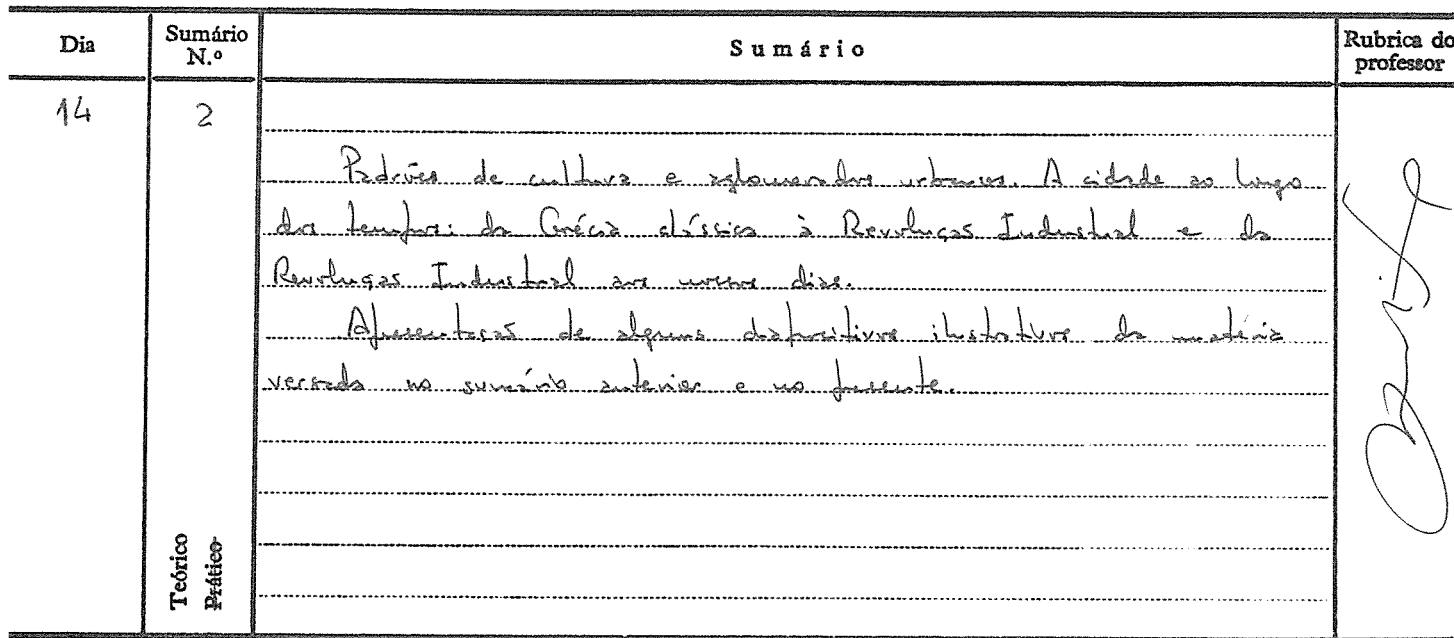 Dia
Sumário N.º
Sumário
Rubrica do professor
14
2
Padrões de cultura e aglomerados urbanos. A cidade ao longo
dos tempos: da Grécia clássica à Revolução Industrial e da
Revolução Industrial aos nossos dias.
Apresentação de alguns diapositivos ilustrativos da matéria
versada no sumário anterior e no presente.
Teórico
Prático